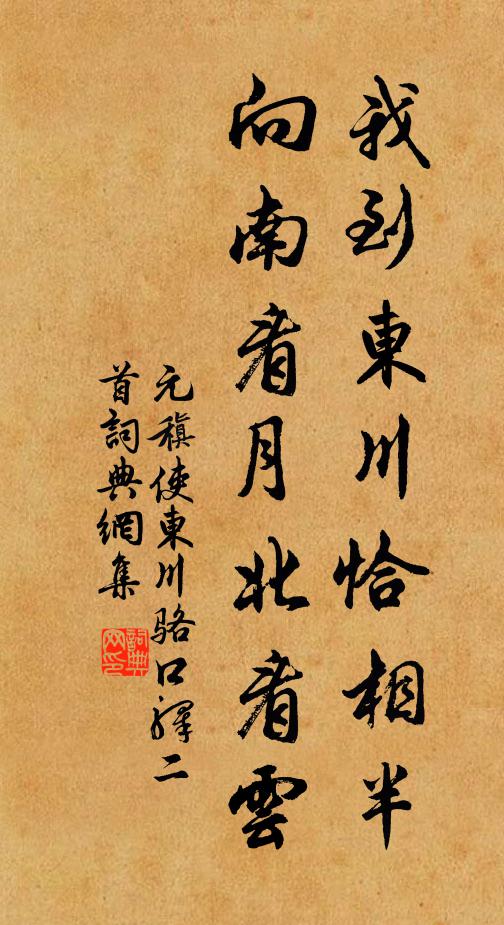 我到東川恰相半
向南看月北看雲
元稹使東川駱口驛二
首詞典網集
詞典
网印